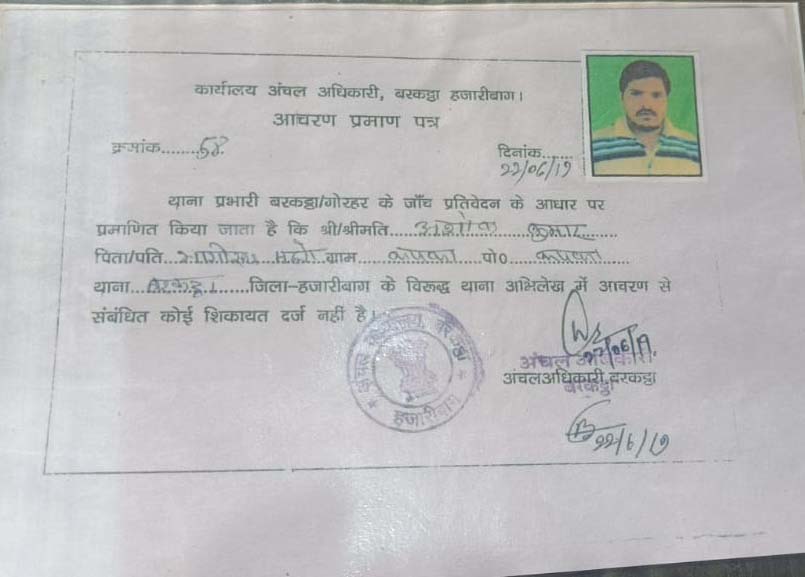 कार्यालय अंचल अधिकारी, बरकट्ठा हजारीबाग।
आचरण प्रमाण पत्र
क्रमांक........58.
दिनांक........
22/06/17
थाना प्रभारी बरकट्ठा/गोरहर के जाँच प्रतिवेदन के आधार पर
प्रमाणित किया जाता है कि श्री/श्रीमति....अशोक.....कुमार......
पिता/पति........महतो ग्राम....कपका.....पो0....कपका.....
थाना...बरकट्ठा......जिला-हजारीबाग के विरूद्ध थाना अभिलेख में आचरण से
संबंधित कोई शिकायत दर्ज नहीं है।
हजारीबाग
अंचल अधिकारी
अंचलअधिकारी, बरकट्ठा
बरकट्ठा
22/6/17